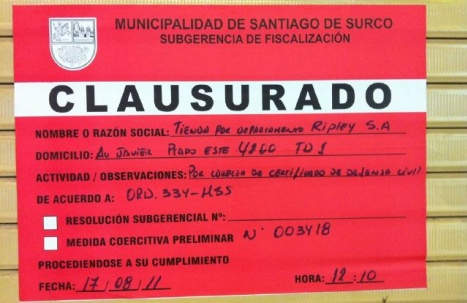 MUNICIPALIDAD DE SANTIAGO DE SURCO
SUBGERENCIA DE FISCALIZACIÓN
CLAUSURADO
NOMBRE O RAZÓN SOCIAL: Tienda por departamento Ripley S.A
DOMICILIO: Av Javier Prado Este 4160 TD1
ACTIVIDAD / OBSERVACIONES: Por carecer de certificado de defensa civil
DE ACUERDO A: ORD. 334-MSS
RESOLUCIÓN SUBGERENCIAL Nº:
MEDIDA COERCITIVA PRELIMINAR Nº 003418
PROCEDIENDOSE A SU CUMPLIMIENTO
FECHA: 17 / 08 / 11 HORA: 12:10